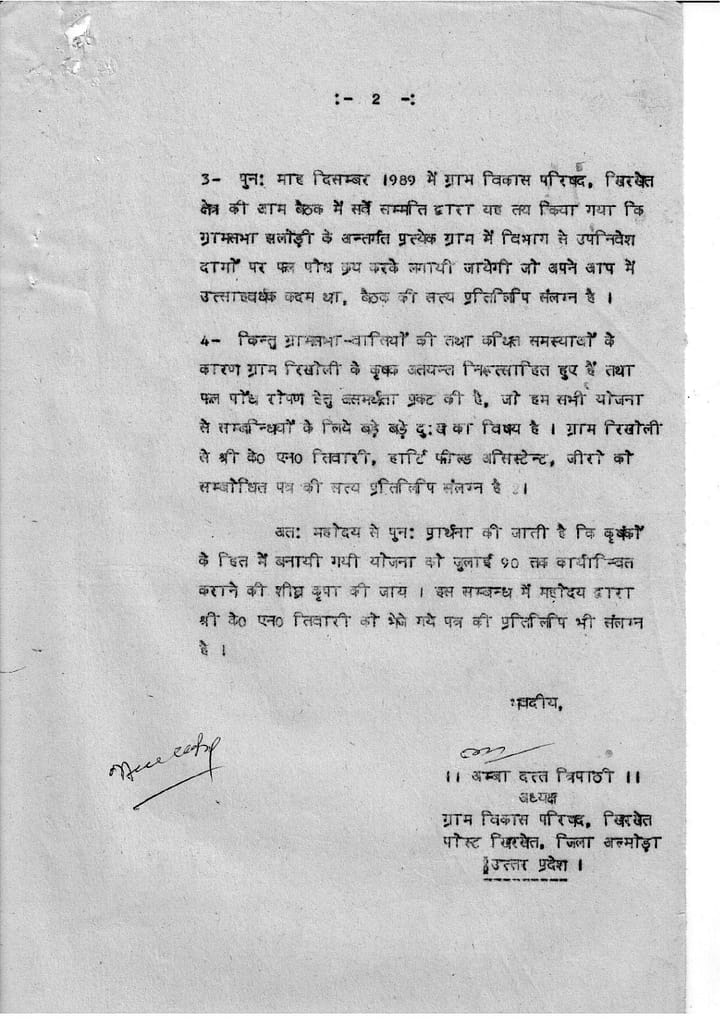 :- 2 -:
3- पुन: माह दिसम्बर 1989 में ग्राम विकास परिषद, खिरखेत
क्षेत्र की आम बैठक में सर्व सम्मति द्वारा यह तय किया गया कि
ग्रामसभा झलोड़ी के अन्तर्गत प्रत्येक ग्राम में विभाग से उपनिवेश
दामों पर फल पौध क्रय करके लगायी जायेगी जो अपने आप में
उत्साहवर्धक कदम था, बैठक की सत्य प्रतिलिपि संलग्न है ।
4- किन्तु ग्रामसभा-वासियों की तथा कथित समस्यायों के
कारण ग्राम रिखोली के कृषक अतयन्त निरूत्साहित हुए हैं तथा
फल पौध रोपण हेतु असमर्थता प्रकट की है, जो हम सभी योजना
से सम्बन्धियों के लिये बड़े बड़े दु:ख का विषय है । ग्राम रिखोली
से श्री के0 एन0 तिवारी, हार्टि फील्ड असिस्टेन्ट, जीरो को
सम्बोधित पत्र की सत्य प्रतिलिपि संलग्न है ।
अत: महोदय से पुन: प्रार्थना की जाती है कि कृषकों
के हित में बनायी गयी योजना को जुलाई 90 तक कार्यान्वित
कराने की शीघ्र कृपा की जाय । इस सम्बन्ध में महोदय द्वारा
श्री के0 एन0 तिवारी को भेजे गये पत्र की प्रतिलिपि भी संलग्न
है ।
भवदीय,
।। अम्बा दत्त त्रिपाठी ।।
अध्यक्ष
ग्राम विकास परिषद, खिरखेत
पोस्ट खिरखेत, जिला अल्मोड़ा
उत्तर प्रदेश ।